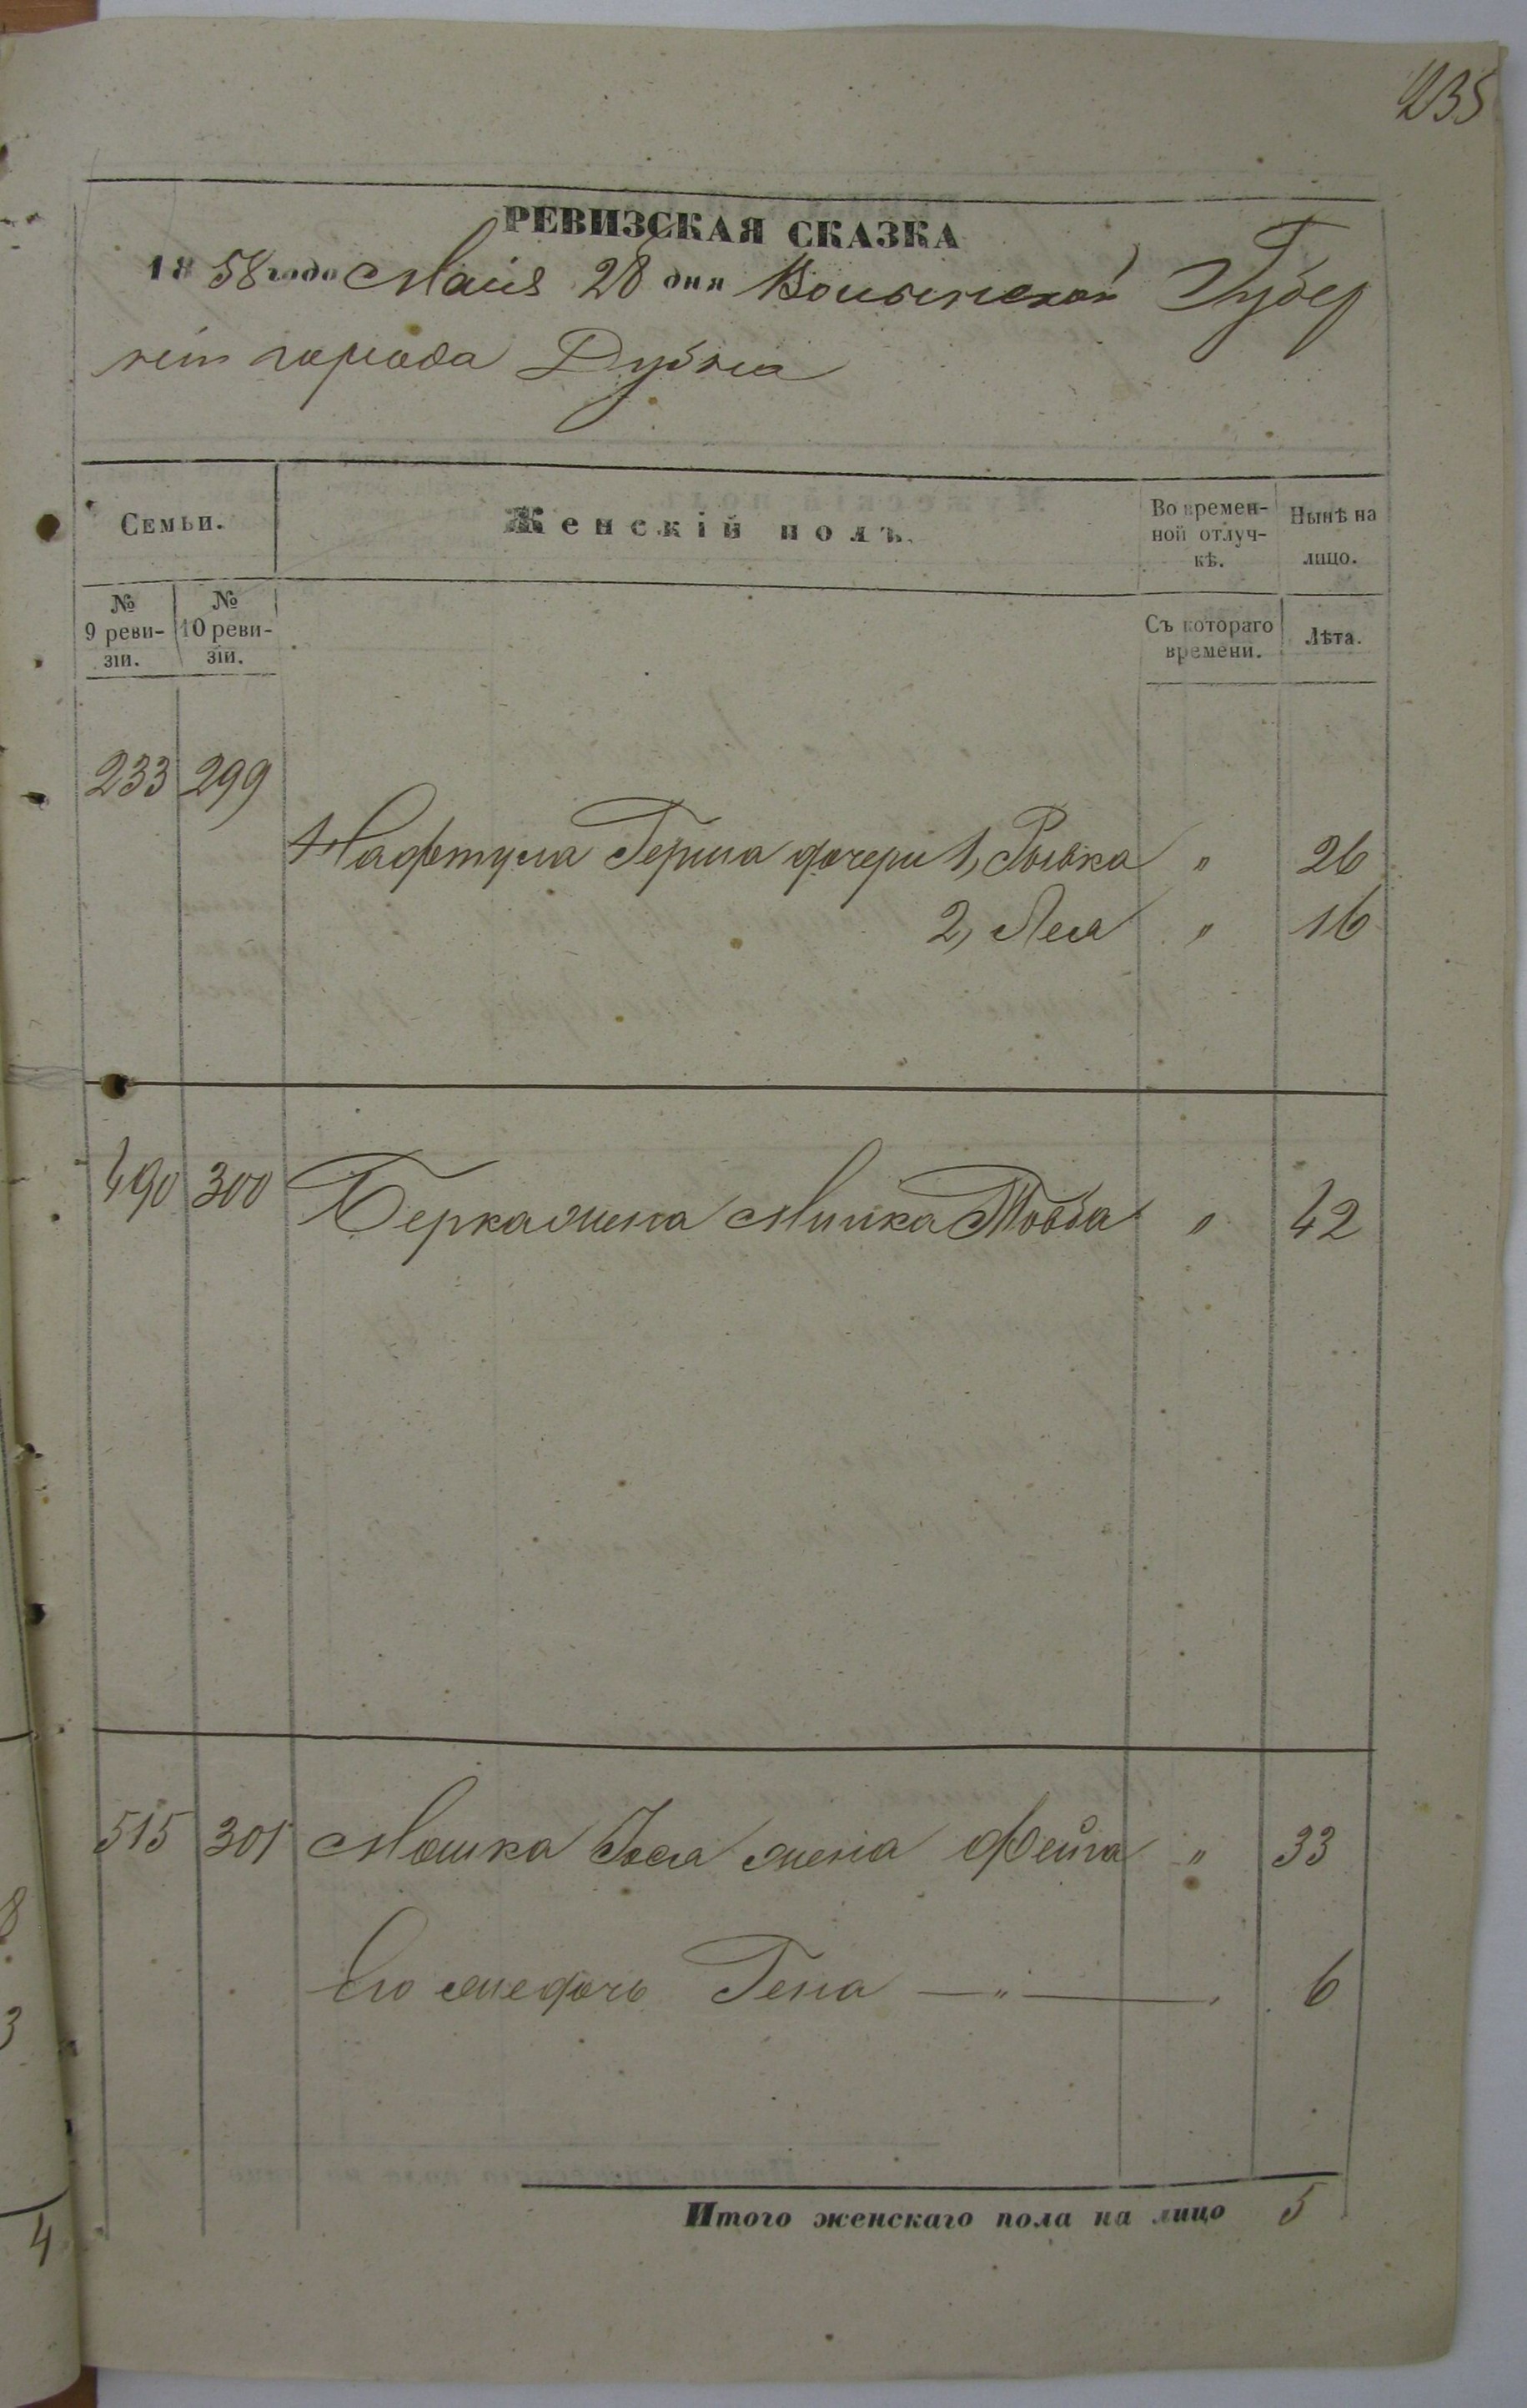 235
РЕВИЗСКАЯ СКАЗКА
1858 года Маія 28 дня Волынской Губер
ніи города Дубна
Семьи.
Женскій полъ.
Во времен-
ной отлуч-
кѣ.
Нынѣ на
лицо.
№
9 реви-
зіи.
№
10 реви-
зіи.
Съ котораго
времени.
Лѣта.
233 299
Нафтула Герша дочери 1, Рывка " 26
2, Лея " 16
490 300 Берка жена Минка Товба " 42
515 301 Мошка Іося жена Фейга " 33
Его же дочь Гена — " — 6
Итого женскаго пола на лицо 5
8
3
4